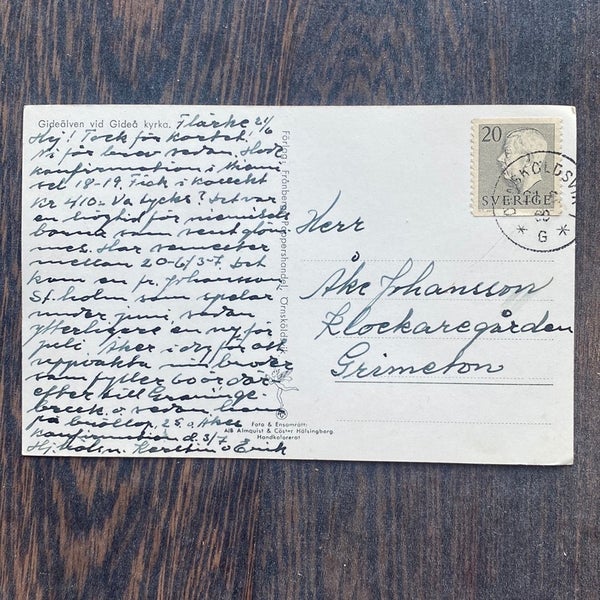 Gideälven vid Gideå kyrka. Flärke 21/6
Hej! Tack för kortet.
Ni får brev sedan. Hade
konfirmation i
18-19. Fick i kollekt
Kr 410:- Va tycks? Det var
en högtid för
barna som sent glöm-
mes. Har semester
mellan 20-6/3-7. Det
kom en fr. Johansson
St.holm som spelar
under juni, sedan
ytterligare en ny för
juli. Åker i dag för att
uppvakta min broder
som fyller 60 år där
efter till Graninge-
o. sedan
på bröllop, 25, o. Åkes
konfirmation d. 3/7.
Hj. Kerstin o Erik
Förlag: Frånbergs Pappershandel, Örnsköldsvik
Foto & Ensamrätt:
A/B Almquist & Cöster Hälsingborg
Handkolorerat
20
SVERIGE
ÖRNSKÖLDSVIK 1
G
Herr
Åke Johansson
Klockaregården
Grimeton